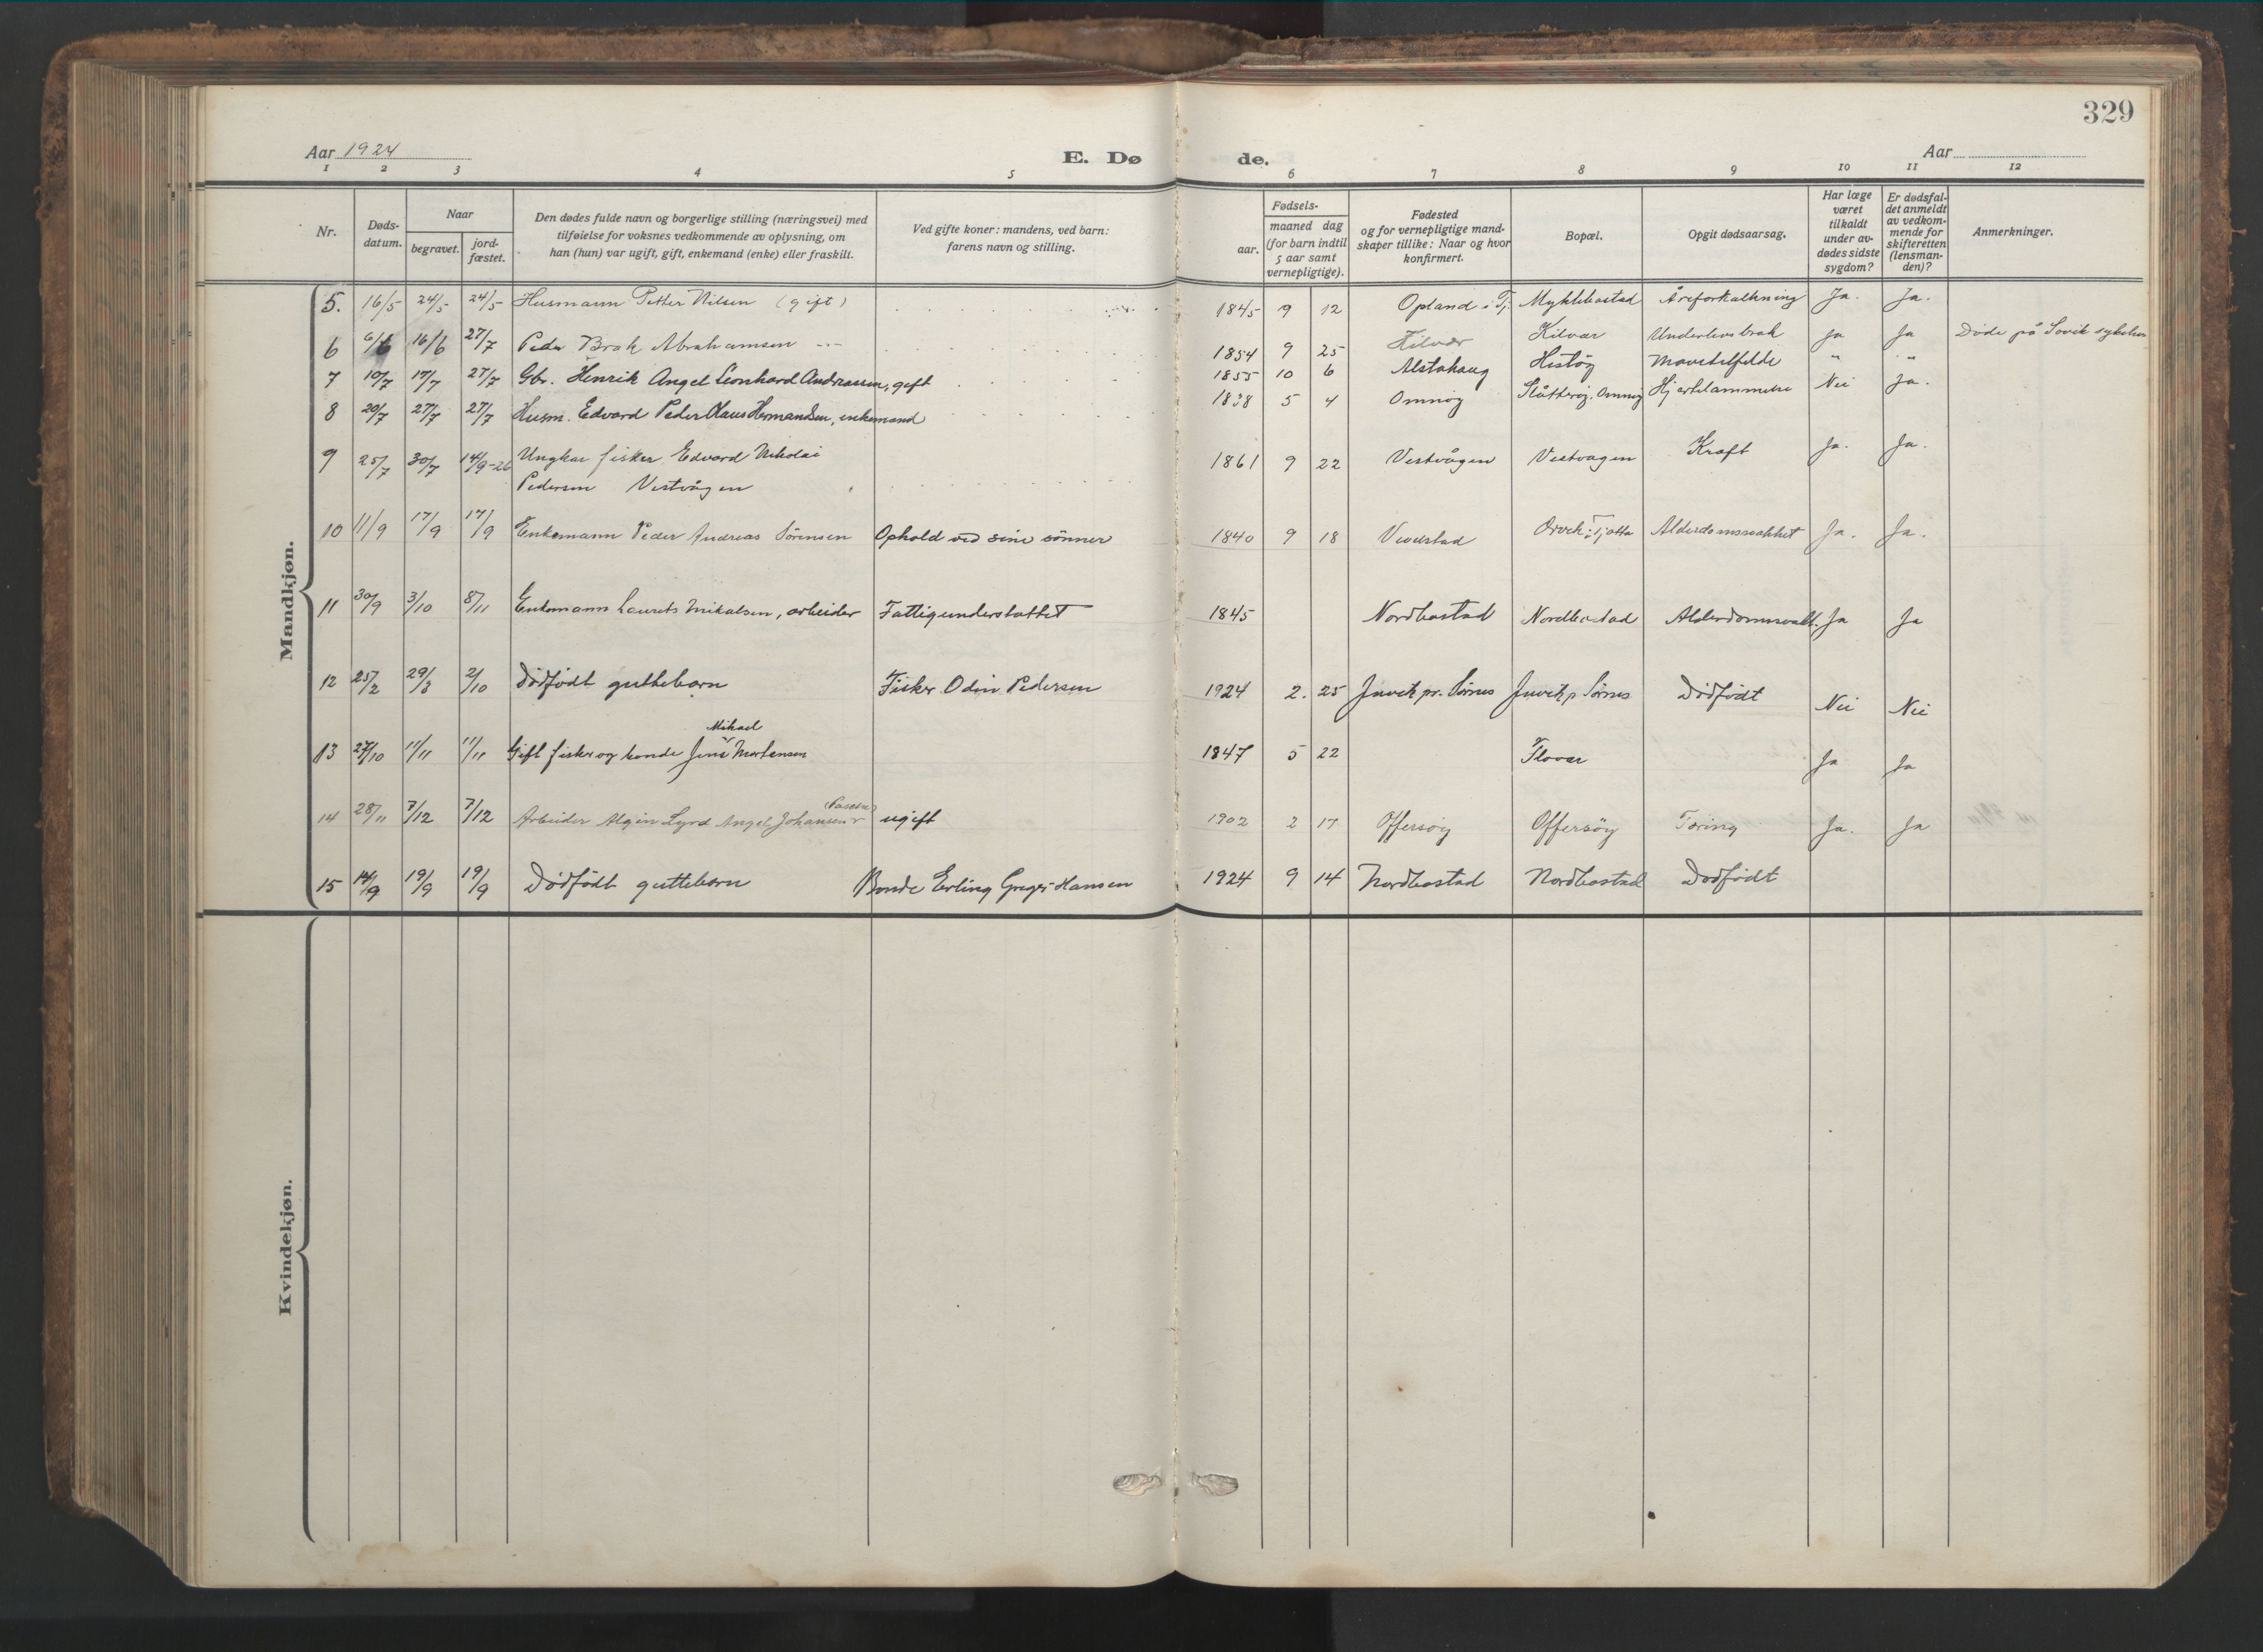 329
Aar 1924
E. Dø de.
Aar
1 2 3 4 5 6 7 8 9 10 11 12
Nr.
Døds-
datum.
Naar
begravet.
jord-
fæstet.
Den dødes fulde navn og borgerlige stilling (næringsvei) med
tilføielse for voksnes vedkommende av oplysning, om
han (hun) var ugift, gift, enkemand (enke) eller fraskilt.
Ved gifte koner: mandens, ved barn:
farens navn og stilling.
Fødsels-
aar.
maaned dag
(for barn indtil
5 aar samt
vernepligtige).
Fødested
og for vernepligtige mand-
skaper tillike: Naar og hvor
konfirmert.
Bopæl.
Opgit dødsaarsag.
Har læge
været
tilkaldt
under av-
dødes sidste
sygdom?
Er dødsfal-
det anmeldt
av vedkom-
mende for
skifteretten
(lensman-
den)?
Anmerkninger.
Mandkjøn.
5. 16/5 24/5 24/5 Husmann Petter Nilsen (gift) 1845 9 12 Opland i Tj. Myklebostad Åreforkalkning Ja. Ja.
6 6/6 16/6 27/7 Peder Brok Abrahamsen 1854 9 25 Kilvær Kilvær Underlivsbrok Ja Ja Døde på Sovik sykehus
7 10/7 17/7 27/7 Gbr. Henrik Angel Leonhard Andreassen, gift 1855 10 6 Alstahaug Hestøy Mavetilfelde " "
8 20/7 27/7 27/7 Husm. Edvard Peder Klaus Hermandsen, enkemand 1838 5 4 Omnøy Slåtterøy, Omnøy Hjertelammelse Nei Ja.
9 25/7 30/7 14/9-26 Ungkar fisker Edvard Nikolai
Pedersen Vestvågen 1861 9 22 Vestvågen Vestvagen Kræft Ja. Ja.
10 11/9 17/9 17/9 Enkemann Peder Andreas Sörensen Ophold ved sine sönner 1840 9 18 Vevelstad Tjøtta Alderdomssvakhet Ja. Ja.
11 30/9 3/10 8/11 Enkemann Laurets Mikalsen, arbeider Fattigunderstøttet 1845 Nordbostad Nordbostad Alderdomssvakh. Ja Ja
12 25/2 29/3 2/10 Dödfödt guttebarn Fisker Odin Pedersen 1924 2. 25 Juvik pr. Sörnes Juvik p. Sörnes Dödfödt Nei Nei
13 27/10 11/11 11/11 Gift fisker og bonde Jens Mikael Mortensen 1847 5 22 Flovær Ja Ja
14 28/11 7/12 7/12 Arbeider Algin Lyrd Angel Johansen ugift 1902 2 17 Offersöy Offersöy Tæring Ja. Ja
15 14/9 19/9 19/9 Dödfödt guttebarn Bonde Erling Greger Hansen 1924 9 14 Nordbostad Nordbostad Dodfödt
Kvindekjøn.